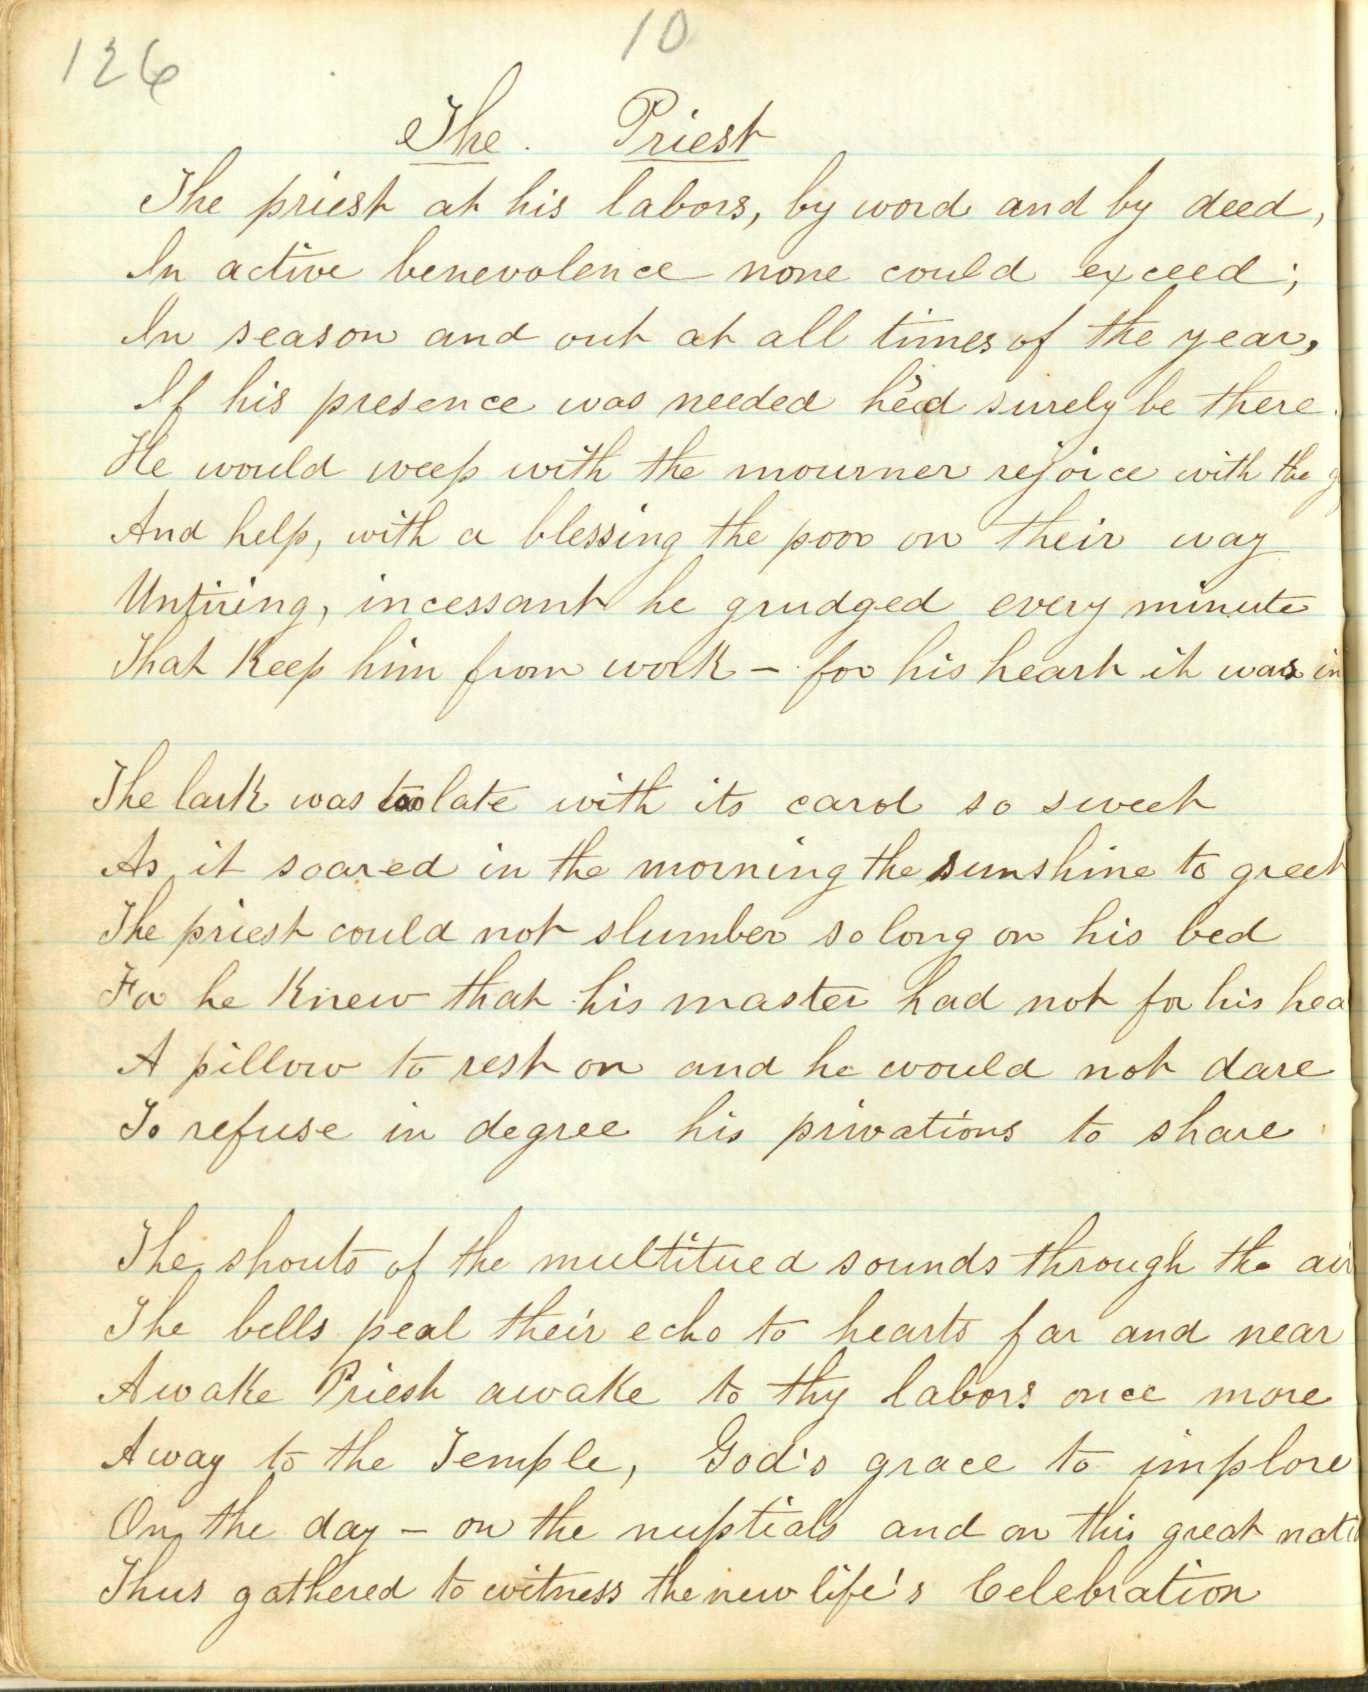 126
10
The. Priest
The priest at his labors, by word and by deed,
In active benevolence none could exceed;
In season and out at all times of the year,
If his presence was needed he'd surely be there.
He would weep with the mourner rejoice with the
And help, with a blessing the poor on their way
Untiring, incessant he grudged every minute
That Keep him from work – for his heart it was in
The lark was too late with its carol so sweet
As it soared in the morning the sunshine to greet
The priest could not slumber so long on his bed
For he Knew that his master had not for his hea
A pillow to rest on and he would not dare
To refuse in degree his privations to share
The shouts of the multitued sounds through the air
The bells peal their echo to hearts far and near
Awake Priest awake to thy labors once more
Away to the Temple, God's grace to implore
On the day – on the nuptials and on this great nati
Thus gathered to witness the new life's Celebration